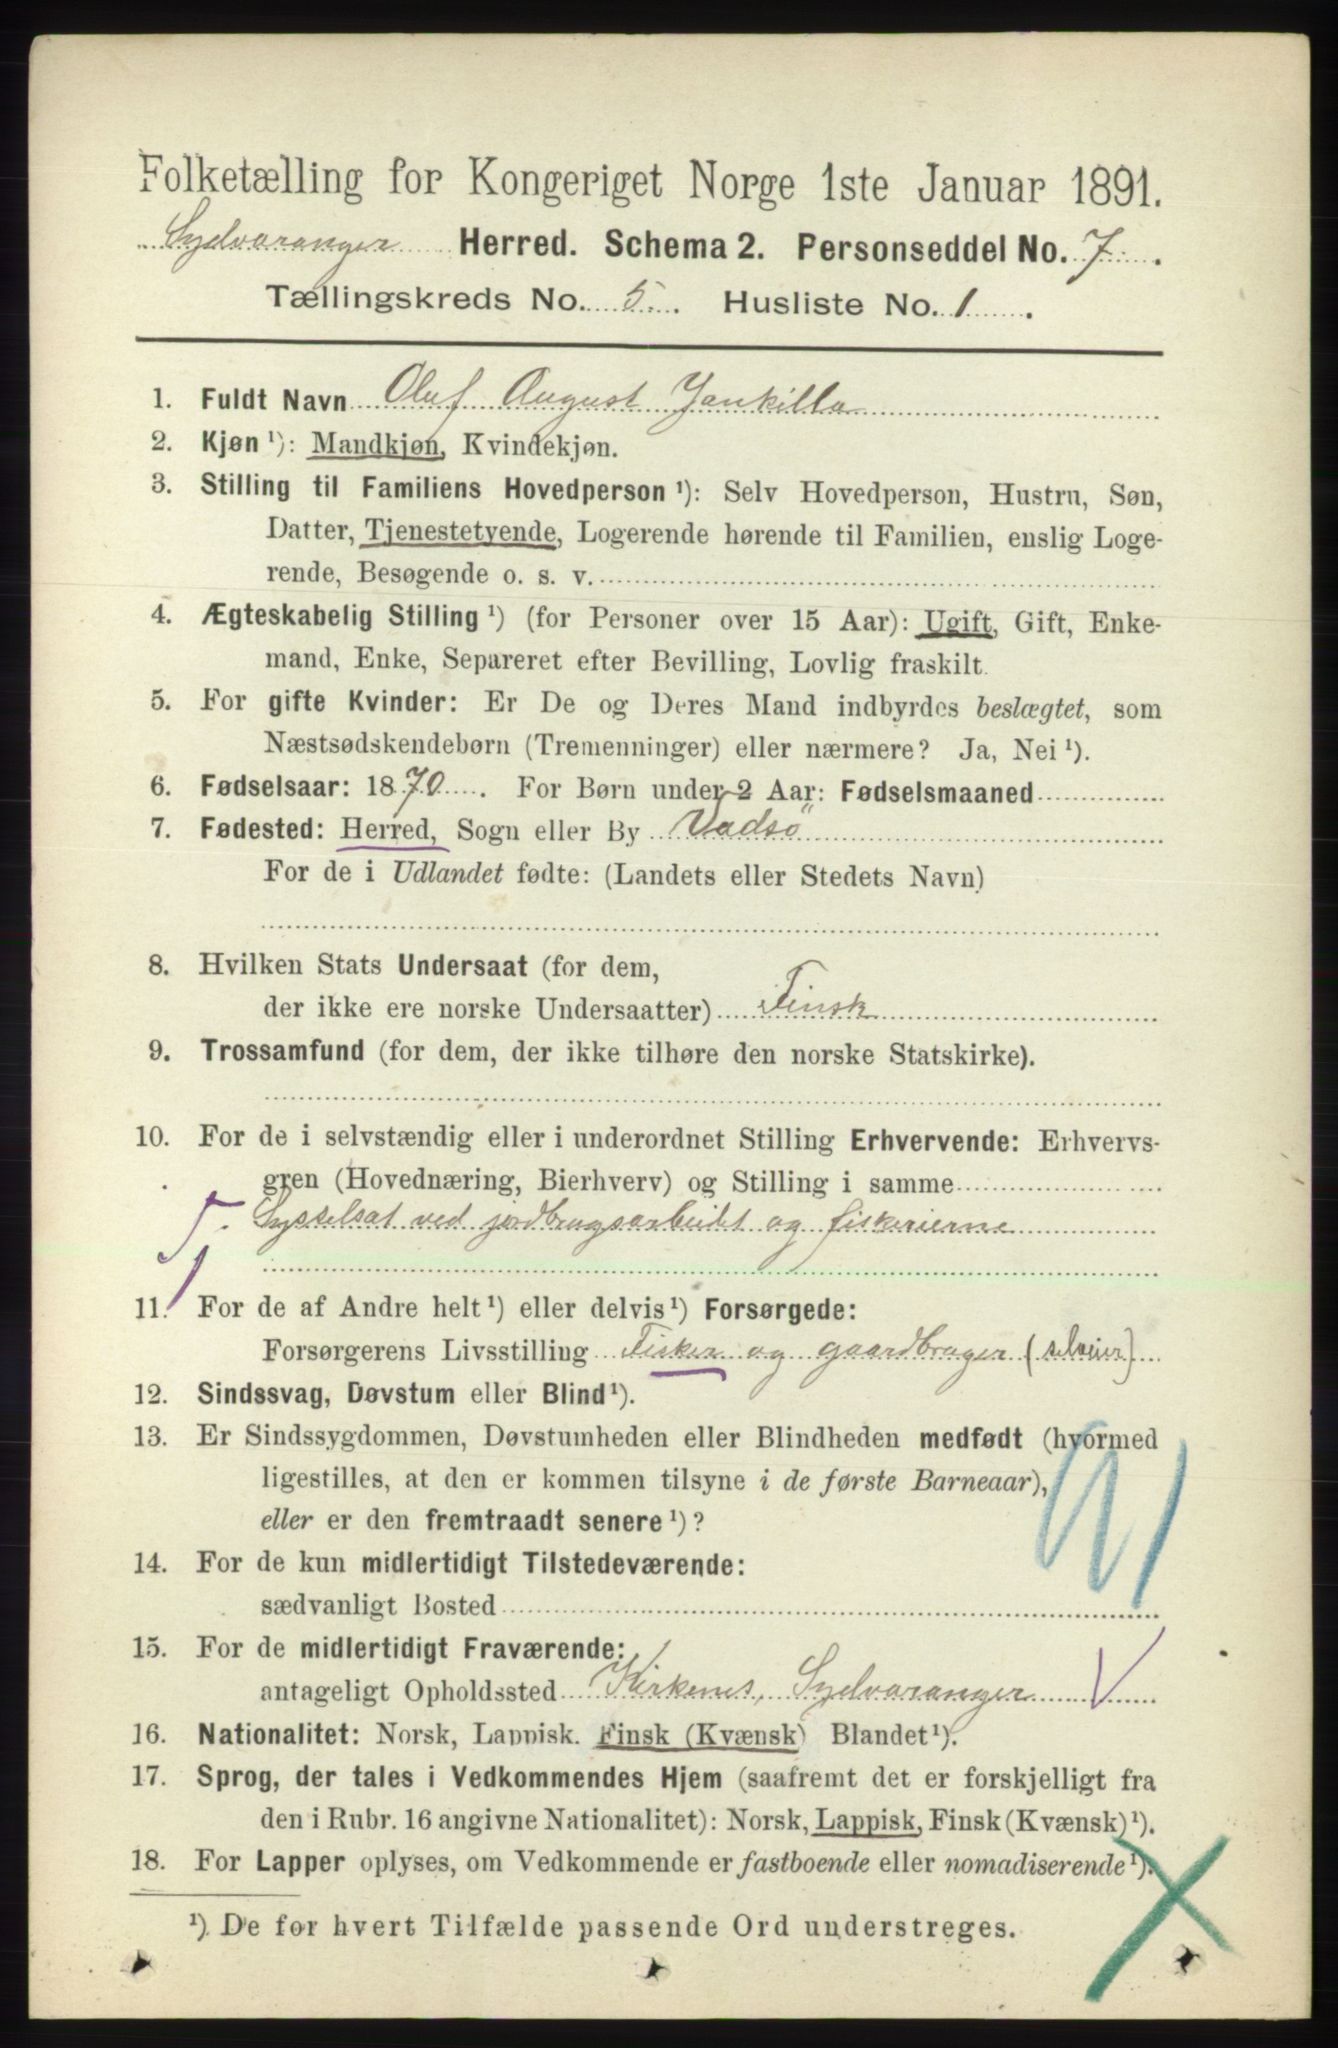 Folketælling for Kongeriget Norge 1ste Januar 1891.
Sydvaranger Herred. Schema 2. Personseddel No. 7.
Tællingskreds No. 5. Husliste No. 1.
1. Fuldt Navn Oluf August Jankilla
2. Kjøn ¹): Mandkjøn, Kvindekjøn.
3. Stilling til Familiens Hovedperson ¹): Selv Hovedperson, Hustru, Søn,
Datter, Tjenestetyende, Logerende hørende til Familien, enslig Loge-
rende, Besøgende o. s. v.
4. Ægteskabelig Stilling ¹) (for Personer over 15 Aar): Ugift, Gift, Enke-
mand, Enke, Separeret efter Bevilling, Lovlig fraskilt.
5. For gifte Kvinder: Er De og Deres Mand indbyrdes beslægtet, som
Næstsødskendebørn (Tremenninger) eller nærmere? Ja, Nei ¹).
6. Fødselsaar: 1870. For Børn under 2 Aar: Fødselsmaaned
7. Fødested: Herred, Sogn eller By Vadsö
For de i Udlandet fødte: (Landets eller Stedets Navn)
8. Hvilken Stats Undersaat (for dem,
der ikke ere norske Undersaatter) Finsk
9. Trossamfund (for dem, der ikke tilhøre den norske Statskirke).
10. For de i selvstændig eller i underordnet Stilling Erhvervende: Erhvervs-
gren (Hovednæring, Bierhverv) og Stilling i samme
Sysselsat ved jordbrugsarbeidet og fiskerierne
11. For de af Andre helt ¹) eller delvis ¹) Forsørgede:
Forsørgerens Livsstilling Fisker og gaardbruger (selveier)
12. Sindssvag, Døvstum eller Blind ¹).
13. Er Sindssygdommen, Døvstumheden eller Blindheden medfødt (hvormed
ligestilles, at den er kommen tilsyne i de første Barneaar),
eller er den fremtraadt senere ¹)?
14. For de kun midlertidigt Tilstedeværende:
sædvanligt Bosted
15. For de midlertidigt Fraværende:
antageligt Opholdssted Kirkenes, Sydvaranger
16. Nationalitet: Norsk, Lappisk. Finsk (Kvænsk) Blandet ¹).
17. Sprog, der tales i Vedkommendes Hjem (saafremt det er forskjelligt fra
den i Rubr. 16 angivne Nationalitet): Norsk, Lappisk, Finsk (Kvænsk) ¹).
18. For Lapper oplyses, om Vedkommende er fastboende eller nomadiserende ¹).
¹) De for hvert Tilfælde passende Ord understreges.